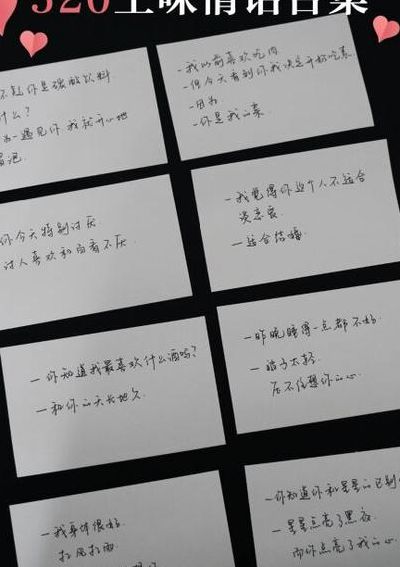 520土味情话合集
不起你是碳酸饮料
什么?
为一遇见你 我就开心地
冒泡.
-我以前最喜欢吃肉
-但今天看到你我决定开始吃素
-因为
-你是我的菜
你今天特别讨厌
讨人喜欢和百看不厌
-我觉得你这个人不适合
谈恋爱
-适合结婚
-你知道我最喜欢什么酒吗?
-和你的天长地久
-昨晚睡得一点都不好
-被子太轻
压不住想你的心
-我身体很好
扛风扛雨
-你知道你和星星的区别
-星星点亮了黑夜
而你点亮了我的心